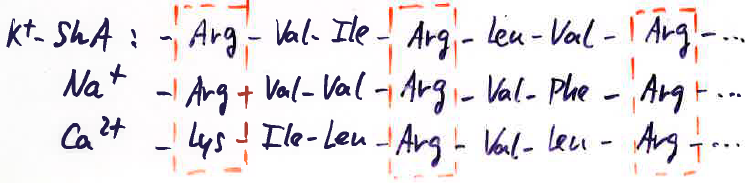 K⁺- ShA : - Arg - Val- Ile - Arg - Leu - Val - Arg - ...
Na⁺ - Arg + Val - Val - Arg - Val - Phe - Arg - ...
Ca²⁺ - Lys - Ile - Leu - Arg - Val - Leu - Arg - ...